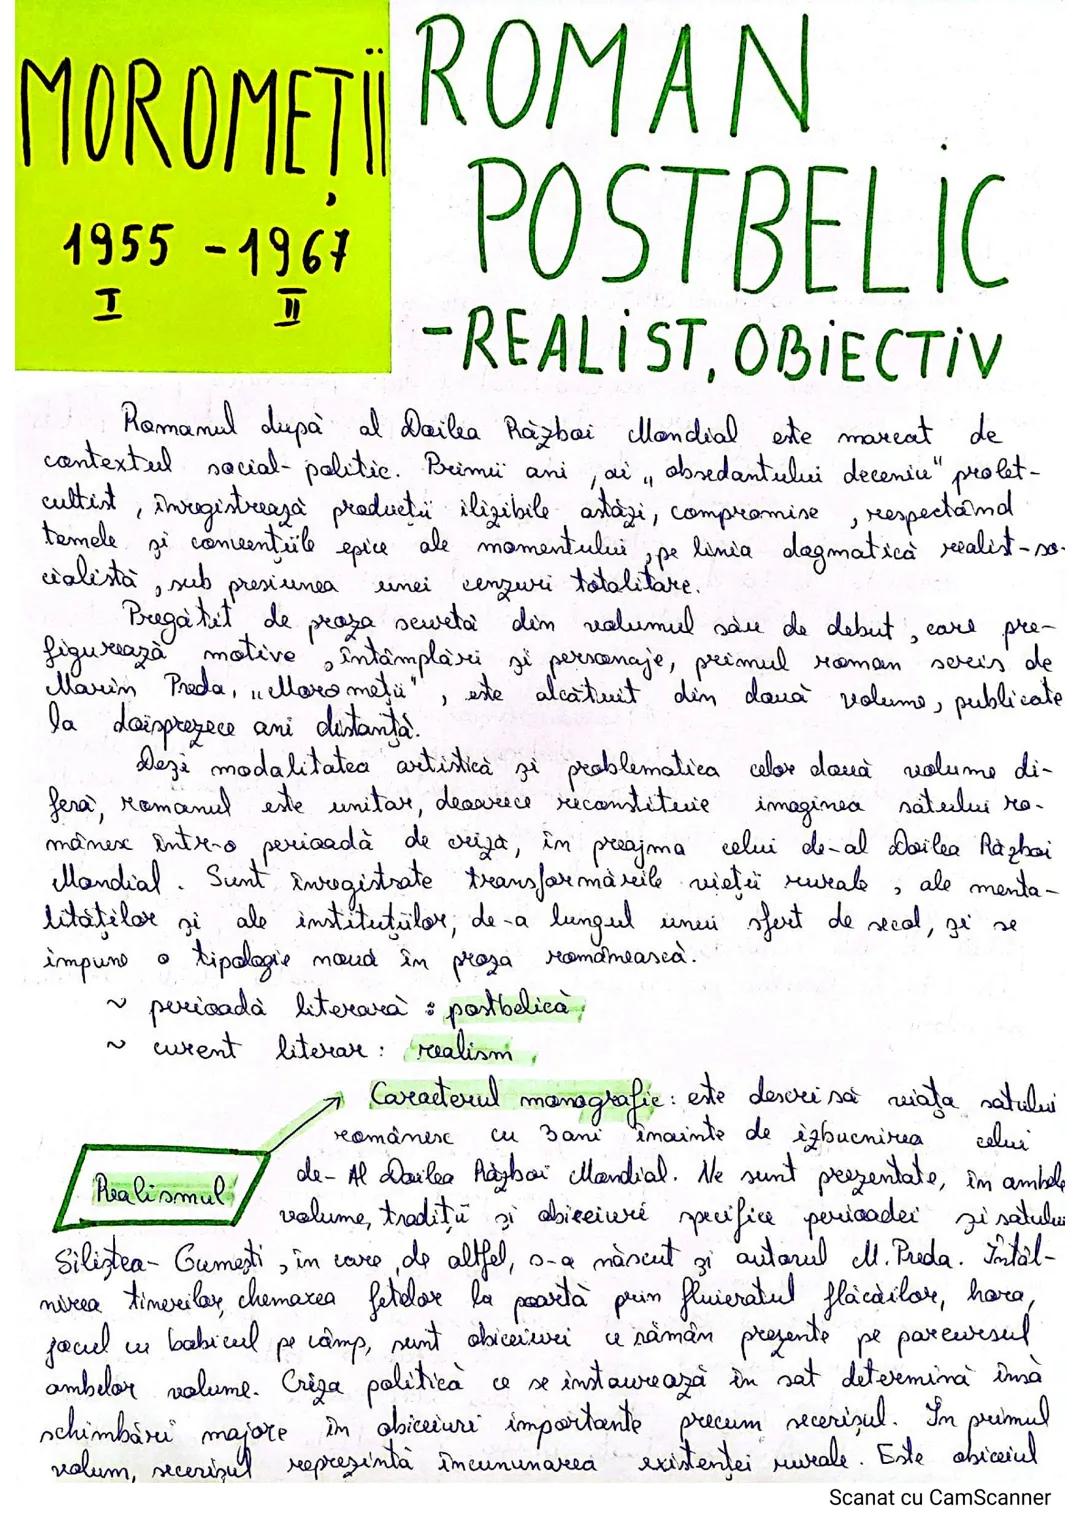 MOROMEȚII
1955 - 1967
I II
ROMAN
POSTBELIC
-REALIST, OBIECTIV
Romanul după al Doilea Război Mondial este marcat de
contextul social-politic. Primii ani, ai „obsedantului deceniu" prolet-
cultist, înregistrează producții ilizibile astăzi, compromise, respectând
temele și convențiile epice ale momentului, pe linia dogmatică realist-so-
cialistă, sub presiunea unei cenzuri totalitare.
Pregătit de proza scurtă din volumul său de debut, care pre-
figurează motive, întâmplări și personaje, primul roman scris de
Marin Preda, „Moromeții", este alcătuit din două volume, publicate
la doisprezece ani distanță.
Deși modalitatea artistică și problematica celor două volume di-
feră, romanul este unitar, deoarece reconstituie imaginea satului ro-
mânesc într-o perioadă de criză, în preajma celui de-al Doilea Război
Mondial. Sunt înregistrate transformările vieții rurale, ale menta-
lităților și ale instituțiilor, de-a lungul unui sfert de secol, și se
impune o tipologie nouă în proza românească.
~ perioadă literară : postbelică,
~ curent literar : realism,
Caracterul monografic: este descrisă viața satului
românesc cu 3 ani înainte de izbucnirea celui
Realismul
de- Al Doilea Război Mondial. Ne sunt prezentate, în ambele
volume, tradiții și obiceiuri specifice perioadei și satului
Siliștea- Gumești, în care, de altfel, s-a născut și autorul M. Preda. Întâl-
nirea tinerilor, chemarea fetelor la poartă prin fluieratul flăcăilor, hora,
jocul cu bobicul pe câmp, sunt obiceiuri ce rămân prezente pe parcursul
ambelor volume. Criza politică ce se instaurează în sat determină însă
schimbări majore în obiceiuri importante precum secerișul. În primul
volum, secerișul reprezintă încununarea existenței rurale. Este obiceiul
Scanat cu CamScanner